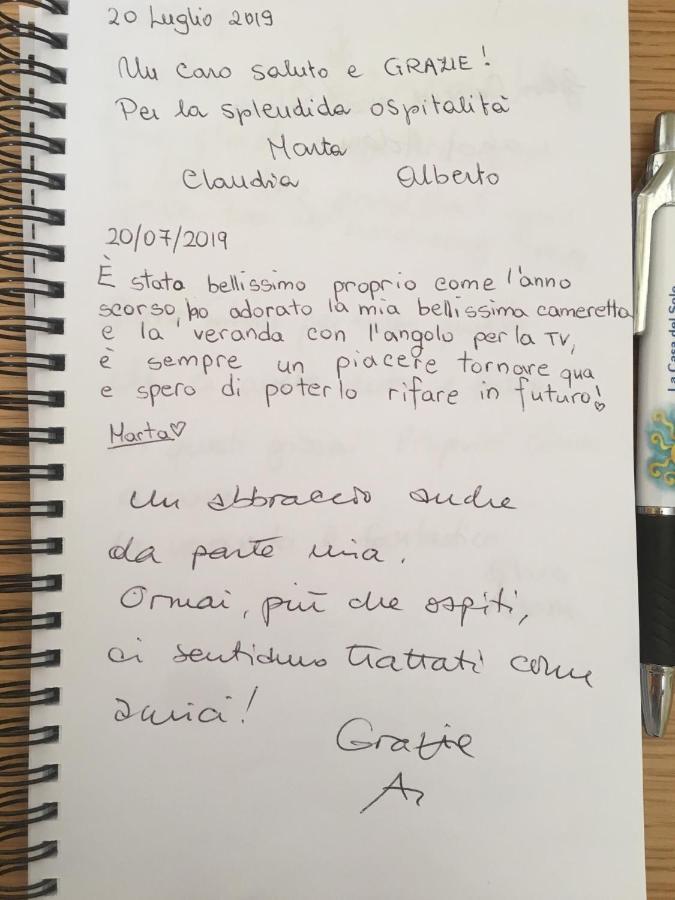 20 Luglio 2019
Un caro saluto e GRAZIE!
Per la splendida ospitalità
Marta
Claudia Alberto
20/07/2019
È stata bellissimo proprio come l'anno
scorso, ho adorato la mia bellissima cameretta
e la veranda con l'angolo per la TV,
è sempre un piacere tornare qua
e spero di poterlo rifare in futuro!
Marta♡
Un abbraccio anche
da parte mia.
Ormai, più che ospiti,
ci sentiamo trattati come
amici!
Grazie
La Casa del Sole